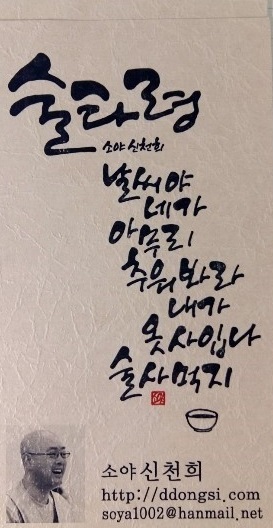 술타령
소야 신천희
날씨야
네가
아무리
추워봐라
내가
옷사입나
술사먹지
소야 신천희
http://ddongsi.com
soya1002@hanmail.net